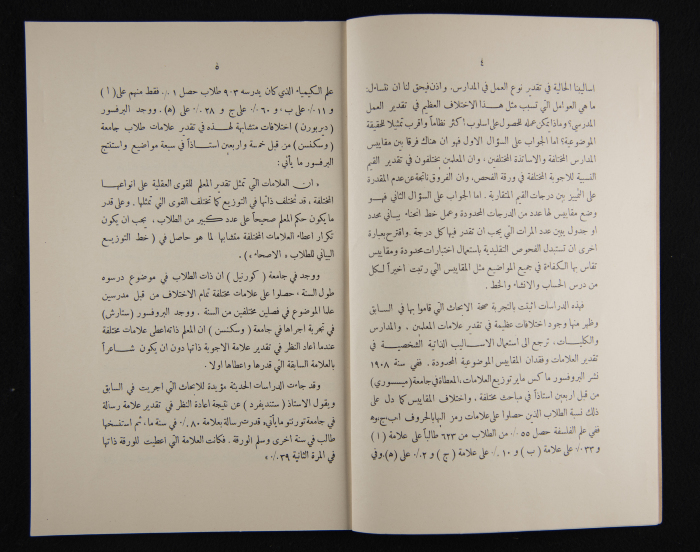 ٤
اساليبنا الحالية في تقدير نوع العمل في المدارس. واذن فيحق لنا ان نتساءل:
ما هي العوامل التي تسبب مثل هذا الاختلاف العظيم في تقدير العمل
المدرسي؟ وماذا يمكن عمله للحصول على اسلوب اكثر نظاماً واقرب تمثيلا للحقيقة
الموضوعية؟ اما الجواب على السؤال الاول فهو ان هناك فرقا بين مقاييس
المدارس المختلفة والاساتذة المختلفين، وان المعلمين يختلفون في تقدير القيم
النسبية للاجوبة المختلفة في ورقة الفحص، وان الفروق ناتجة عن عدم المقدرة
على التمييز بين درجات القيم المتقاربة. اما الجواب على السؤال الثاني فهو
وضع مقاييس لها عدد من الدرجات المحدودة وعمل خط انحناء بياني محدد
او جدول يبين عدد المرات التي يجب ان تقدر فيها كل درجة. واقترح بعبارة
اخرى ان تستبدل الفحوص التقليدية باستعمال اختبارات محدودة ومقاييس
تقاس بها الكفاءة في جميع المواضيع مثل المقاييس التي رتبت اخيراً لكل
من درس الحساب والانشاء والخط.
فهذه الدراسات اثبتت بالتجربة صحة الابحاث التي قاموا بها في السابق
وظهر منها وجود اختلافات عظيمة في تقدير علامات المعلمين، والمدارس
والكليات. ترجع الى استعمال الاساليب الذاتية الشخصية في
تقدير العلامات وفقدان المقاييس الموضوعية المحدودة. ففي سنة ١٩٠٨
نشر البروفسور ماكس ماير توزيع العلامات، المعطاة في جامعة (ميسوري)
من قبل اربعين استاذاً في مباحث مختلفة، واختلاف المقاييس كما دل على
ذلك نسبة الطلاب الذين حصلوا على علامات رمز اليها بالحروف ا،ب،ج،ه
ففي علم الفلسفة حصل ٥٥٪ من الطلاب من ٦٢٣ طالباً على علامة (ا)
و ٣٣٪ على علامة (ب) و ١٠٪ على علامة (ج) و ٢٪ على (ه). وفي
٥
علم الكيمياء الذي كان يدرسه ٩٠٣ طلاب حصل ١٪ فقط منهم على (ا)
و ١١٪ على ب، و ٦٠٪ على ج و ٢٨٪ على (ه). ووجد البرفسور
(ديربورن) اختلافات متشابهة لهذه في تقدير علامات طلاب جامعة
(وسكنسن) من قبل خمسة واربعين استاذاً في سبعة مواضيع واستنتج
البرفسور ما يأتي:
«ان العلامات التي تمثل تقدير المعلم للقوى العقلية على انواعها
المختلفة، قد تختلف ذاتها في التوزيع كما تختلف القوى التي تمثلها. وعلى قدر
ما يكون حكم المعلم صحيحاً على عدد كبير من الطلاب، يجب ان يكون
تكرار اعطاء العلامات المختلفة متشابها لما هو حاصل في (خط التوزيع
البياني للطلاب «الاصحاء»).
ووجد في جامعة (كورنيل) ان ذات الطلاب في موضوع درسوه
طول السنة، حصلوا على علامات مختلفة تمام الاختلاف من قبل مدرسين
علما الموضوع في فصلين مختلفين من السنة. ووجد البروفسور (ستارش)
في تجربة اجراها في جامعة (وسكنسن) ان المعلم ذاته اعطى علامات مختلفة
عندما اعاد النظر في تقدير علامة الاجوبة ذاتها دون ان يكون شاعراً
بالعلامة السابقة التي قدرها واعطاها اولا.
وقد جاءت الدراسات الحديثة مؤيدة للابحاث التي اجريت في السابق
ويقول الاستاذ (ستنديفرد) عن نتيجة اعادة النظر في تقدير علامة رسالة
في جامعة تورنتو ما يأتي، قدرت رسالة بعلامة ٨٠٪ في سنة ما، ثم استنسخها
طالب في سنة اخرى وسلم الورقة. فكانت العلامة التي اعطيت للورقة ذاتها
في المرة الثانية ٣٩٪